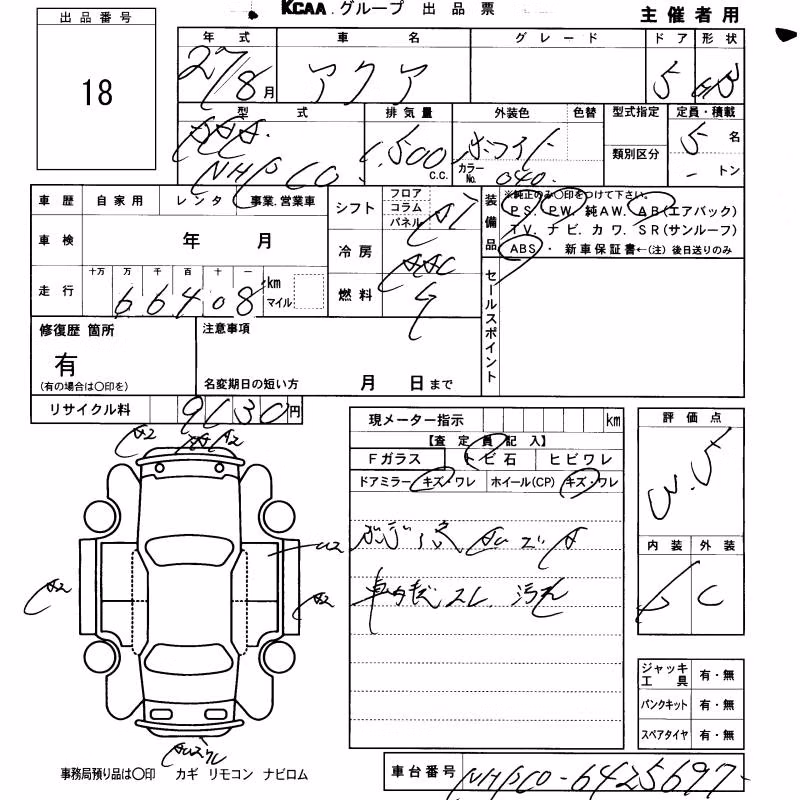 KCAA.グループ 出品票
主催者用
出品番号
18
年式 車名 グレード ドア 形状
27/8月 アクア 5 HB
型式 排気量 外装色 色替 型式指定 定員・積載
類別区分
DAA.
NHP10 1,500 C.C. ホワイト 5名
カラーNo. 040. - トン
車歴 自家用 レンタ 事業.営業車
車検 年 月
走行 十万 万 千 百 十 一
66408 km マイル
シフト フロア コラム パネル AT
冷房 AAC
燃料
装備品 ※純正のみ○印をつけて下さい。
PS. PW. 純AW. AB(エアバック)
TV. ナビ. カワ. SR(サンルーフ)
ABS・ 新車保証書←(注) 後日送りのみ
セールスポイント
修復歴 箇所
有
(有の場合は○印を)
注意事項
名変期日の短い方 月 日まで
リサイクル料 9630円
現メーター指示 km
【査定員記入】
Fガラス トビ石 ヒビワレ
ドアミラー キズ・ワレ ホイール(CP) キズ・ワレ
車内 スレ. 汚れ
評価点
内装 外装
C
A2
A2
U2
A2
A2
ジャッキ工具 有・無
パンクキット 有・無
スペアタイヤ 有・無
事務局預り品は○印 カギ リモコン ナビロム
車台番号 NHP10-6425697-